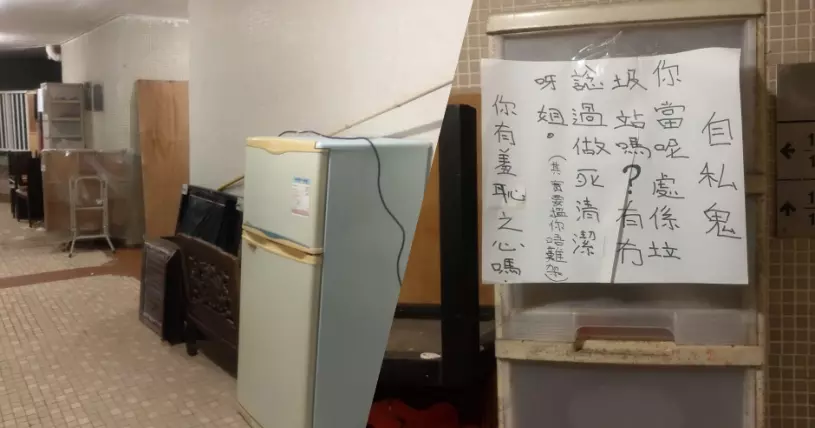 自私鬼
你當呢處係垃
圾站嗎?有冇
諗過做死清潔
呀姐。(其實要搵你唔難架)
你有羞恥之心嗎?